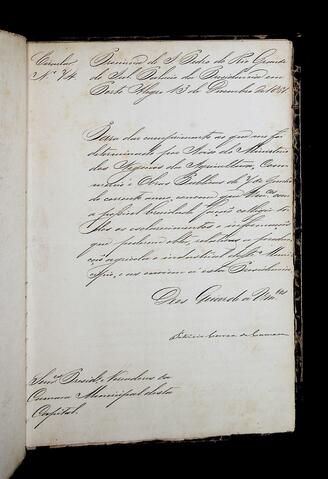 Circular
Nº 74.
Provincia de S. Pedro do Rio Grande
do Sul Palacio da Presidencia em
Porto Alegre 13 de Dezembro de 1881
Para dar cumprimento ao que me foi
determinado por Aviso do Ministerio
dos Negocios da Agricultura, Com-
mercio e Obras Publicas de 7 de
do corrente anno, convem que Vm.ces com
a possivel brevidade
os esclarecimentos e informações
que relativos a produc-
ção agricola e industrial desse Muni-
cipio, e as enviem a esta Presidencia
Deos Guarde a Vm.ces
Correa da Camara
Senr.es Presid.e, Vereadores da
Camara Municipal desta
Capital.